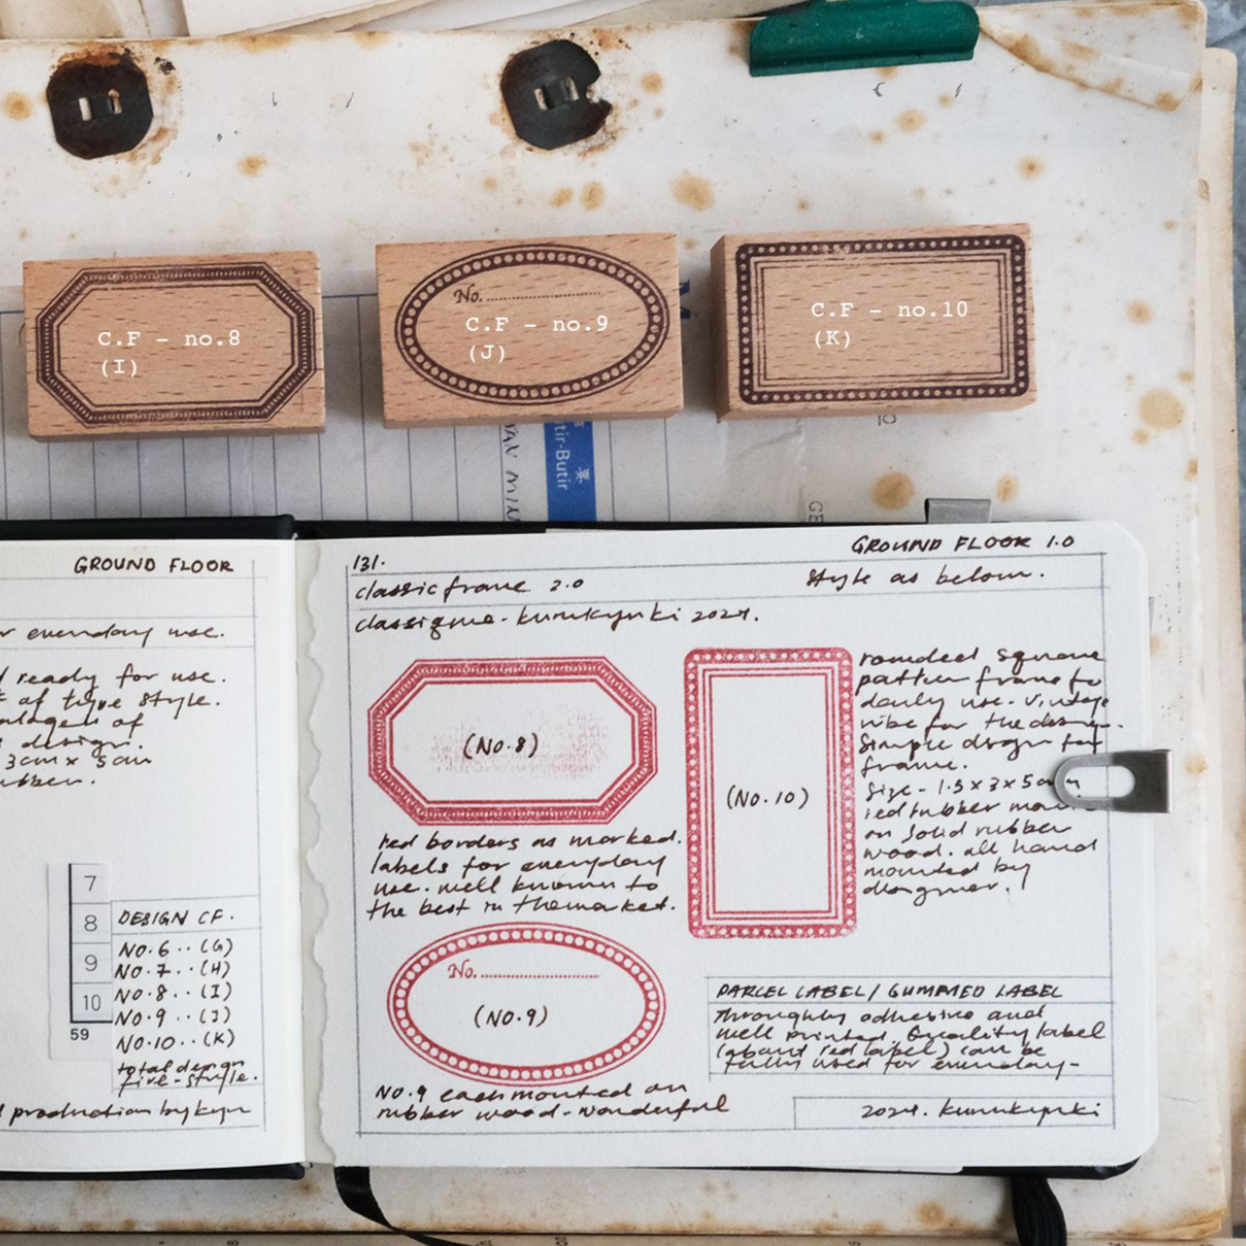 C.F - no.8
(I)
No.
C.F - no.9
(J)
C.F - no.10
(K)
tir-Butir
GROUND FLOOR
r everyday use.
ready for use.
of type style.
of
design.
3cm x 5cm
7
8
9
10
59
DESIGN CF.
NO.6 .. (G)
NO.7 .. (H)
NO.8 .. (I)
NO.9 .. (J)
NO.10 .. (K)
total design
five-style.
production by kyn
131.
GROUND FLOOR 1.0
classic frame 2.0
style as below.
2024.
(NO.8)
red borders as marked.
labels for everyday
use. well known to
the best in the market.
(NO.10)
rounded square
pattern frame for
daily use. vintage
vibe for the
simple design for
frame.
size - 1.5 x 3 x 5cm
red rubber
on solid rubber
wood. all hand
mounted by
designer.
No.
(NO.9)
NO.9 each mounted on
rubber wood - wonderful
PARCEL LABEL / GUMMED LABEL
Throughly adhesive and
well printed. Quality label
(about red label) can be
fully used for everyday-
2024.